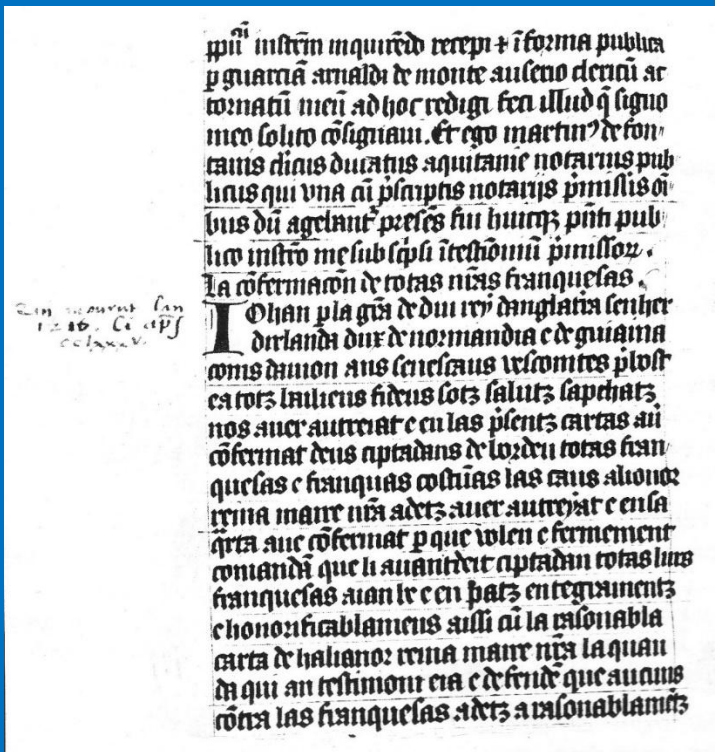 ppriū instrm̄ inquirēdo recepi ⁊ ī forma publica
ꝑ guarciā arnaldi de monte auserio clericū at
tornatū meū ad hoc redigi feci illud q̄ signo
meo solito cōsignaui. Et ego martinꝰ de fon
tanis cl̄icus ducatus aquitanie notarius pub
licus qui vna cū p̄scriptis notarijs p̄missis oī
bus dū agebantᷣ presēs fui huicqꝫ pn̄ti pub
lico instro me subscp̄si ī testiōniū p̄missoꝝ.
La cōfermacōn de totas nr̄as franquesas.
IOhan p̄ la gr̄a de diu rey danglat̄ia senher
dirlanda dux de normandia e de guiaina
coms daniou aus senescaus vescomtes p̄bost
ca totz bailieus fideus sotz salutz sapchatz
nos auer autreiat e en las p̄sentz cartas aū
cōfermat deus ciptadans de bordeu totas fran
quesas e franquas costūas las caus alionor
reina maire nr̄a adetz auer autreyat e en sa
q̄rta aue cōfermat ꝑ que volen e fermement
comandā que li auantdeit ciptadan totas lurs
franquesas aian be e en patz entegraimentz
e honorificablamens aissi cū la rasonabla
carta de halianor reina maire nr̄a laquau
da qui an testimoni era e defendē que aucuns
cōtra las franquesas adetz a rasonablamētz
mourut lan
1216.